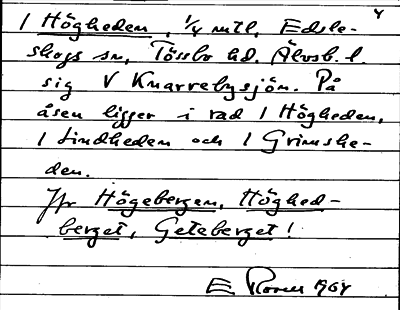 1 Högheden, 1/4 mtl, Edsle-
skogs sn, Tössbo hd. Älvsb. l.
sig V Knarrebysjön. På
åsen ligger i rad 1 Högheden,
1 Lindheden och 1 Grimshe-
den.
Jfr Högebergen, Höghed-
berget, Geteberget!
E